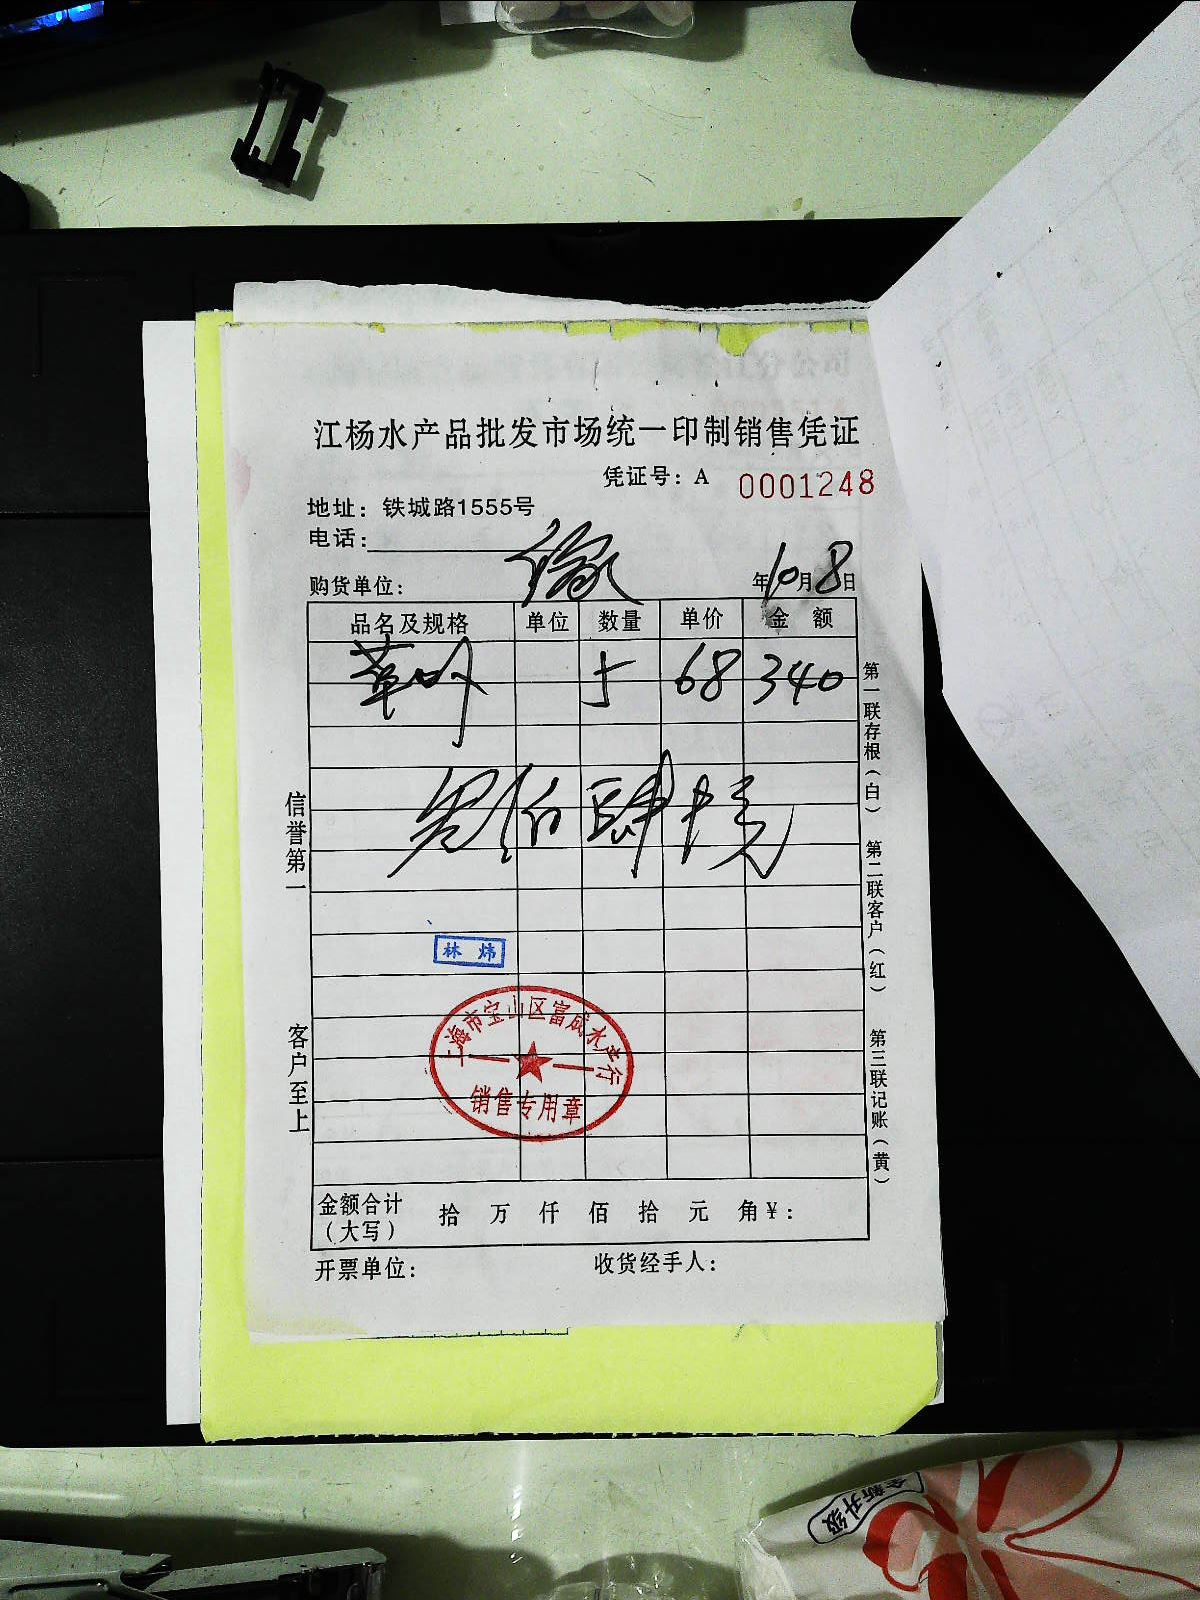 江杨水产品批发市场统一印制销售凭证
凭证号：A 0001248
地址：铁城路1555号
电话：
购货单位： 年10月8日
品名及规格 单位 数量 单价 金额
草 5 68 340
叁佰肆十元
信誉第一
客户至上
第一联存根（白）
第二联客户（红）
第三联记账（黄）
林炜
上海市宝山区富成水产行
销售专用章
金额合计（大写） 拾 万 仟 佰 拾 元 角¥：
开票单位： 收货经手人：
全新升级